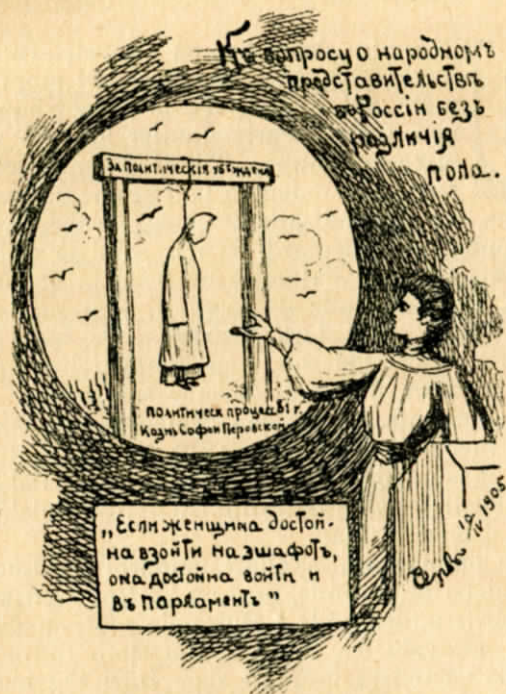 Къ вопросу о народномъ
представительствѣ
въ Россіи безъ
различія
пола.
За политическія убежден
политическ процес 81 г.
Казнь Софьи Перовской
„Если женщина достой-
на взойти на эшафотъ,
она достойна войти и
въ парламентъ"
19/IV 1905